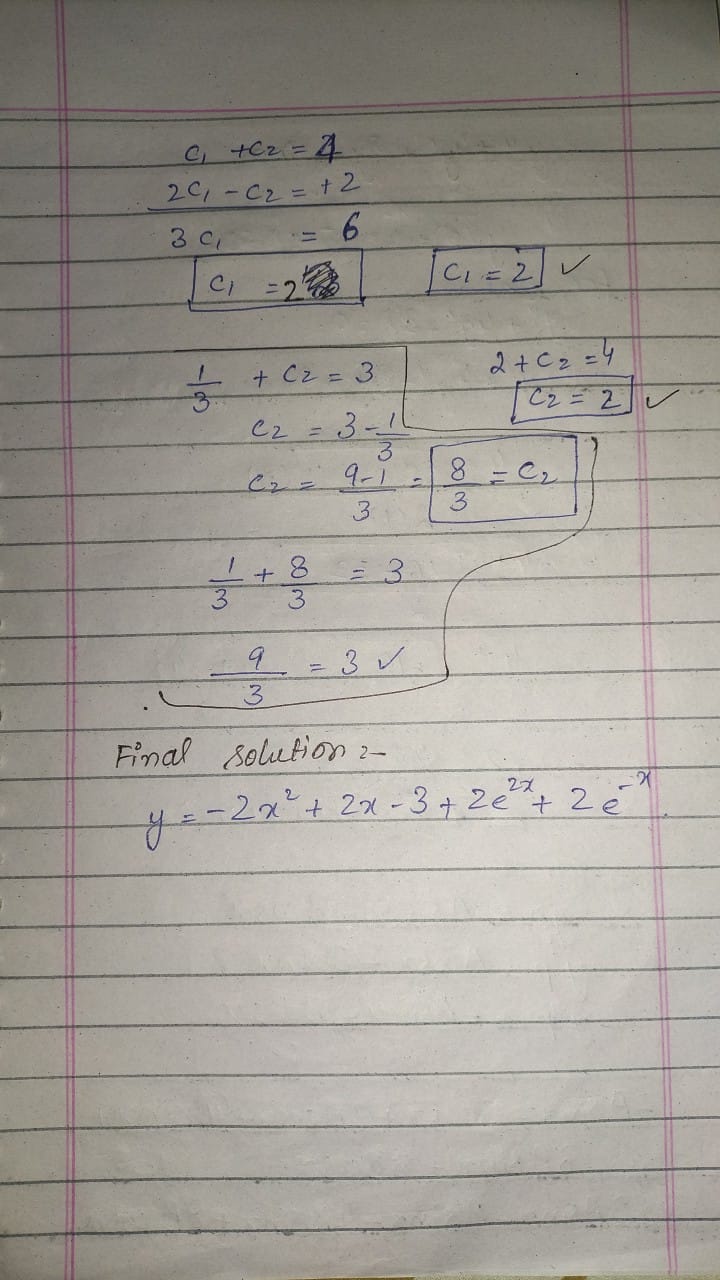 c₁ + c₂ = 4
2c₁ - c₂ = +2
3c₁ = 6
c₁ = 2
c₁ = 2 ✓
2 + c₂ = 4
c₂ = 2 ✓
1/3 + c₂ = 3
c₂ = 3 - 1/3
c₂ = 9-1/3 = 8/3 = c₂
1/3 + 8/3 = 3
9/3 = 3 ✓
Final solution :-
y = -2x² + 2x - 3 + 2e^2x + 2e^-x.